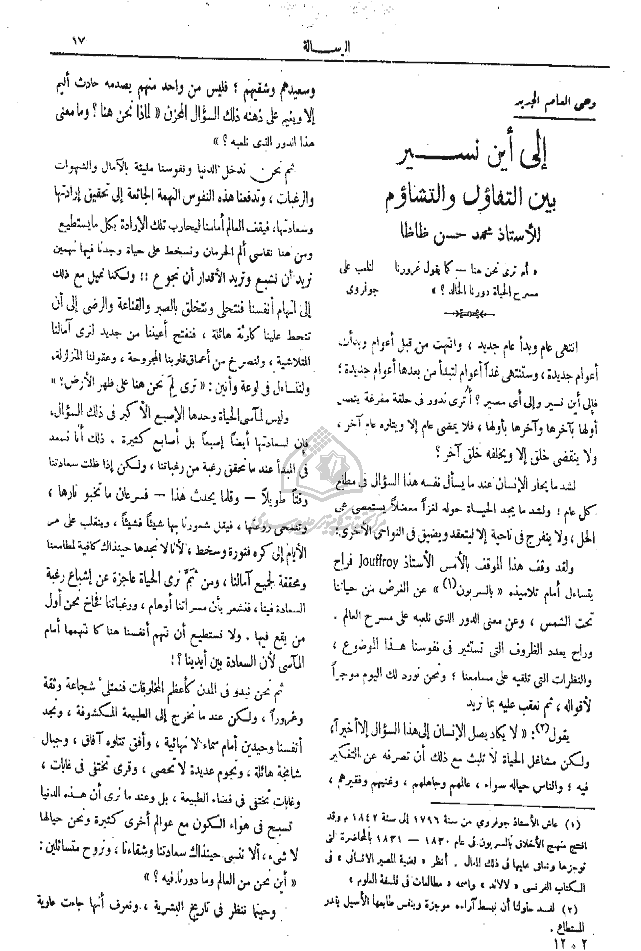 الرسالة
١٧
وحى العام الجديد
إلى أين نسير
بين التفاؤل والتشاؤم
للأستاذ محمد حسن ظاظا
« لم ترى نحن هنا — كما يقول غرورنا لنلعب على
مسرح الحياة دورنا الخالد ؟ » جوفروى
انتهى عام وبدأ عام جديد ، وانتهت من قبل أعوام وبدأت
أعوام جديدة ، وستنتهى غداً أعوام لتبدأ من بعدها أعوام جديدة ؛
فإلى أين نسير وإلى أى مصير ؟ أترى ندور فى حلقة مفرغة يتصل
أولها بآخرها وآخرها بأولها ، فلا يمضى عام إلا ويتلوه عام آخر ،
ولا ينقضى خلق إلا ويخلفه خلق آخر ؟
لشد ما يحار الإنسان عند ما يسأل نفسه هذا السؤال فى مطلع
كل عام ؛ ولشد ما يجد الحياة حوله لغزاً معضلاً يستعصى على
الحل ، ولا ينفرج فى ناحية إلا ليتعقد ويضيق فى النواحى الأخرى
ولقد وقف هذا الموقف بالأمس الأستاذ Jouffroy فراح
يتساءل أمام تلاميذه « بالسربون (١) » عن الغرض من حياتنا
تحت الشمس ، وعن معنى الدور الذى نلعبه على مسرح العالم .
وراح يعدد الظروف التى تستثير فى نفوسنا هذا الموضوع ،
والنظرات التى تلقيه على مسامعنا ؛ ونحن نورد لك اليوم موجزاً
لأقواله ، ثم نعقب عليه بما نريد
يقول (٢): « لا يكاد يصل الإنسان إلى هذا السؤال إلا أخيراً،
ولكن مشاغل الحياة لا تلبث مع ذلك أن تصرفه عن التفكير
فيه ؛ والناس حياله سواء ، عالمهم وجاهلهم ، وغنيهم وفقيرهم ،
(١) عاش الأستاذ جوفروي من سنة ١٧٩٦ إلى سنة ١٨٤٢ م وقد
افتتح منهج الأخلاق بالسربون فى عام ١٨٣٠ — ١٨٣١ بالمحاضرة التى
نوجزها ونعلق عليها فى ذلك المقال . أنظر « قضية المصير الانسانى » فى
الكتاب الفرنسى « لالاند » واسمه « مطالعات فى فلسفة العلوم »
(٢) لقد حاولنا أن نبسط آراءه موجزة وبنفس طابعها الأصيل بقدر
المستطاع .
٢ — ١٢
وسعيدهم وشقيهم ؛ فليس من واحد منهم يصدمه حادث أليم
إلا ويقيم على ذهنه ذلك السؤال المحزن « لماذا نحن هنا ؟ وما معنى
هذا الدور الذى نلعبه ؟ »
ثم نحن ندخل الدنيا ونفوسنا مليئة بالآمال والشهوات
والرغبات ، وتدفعنا هذه النفوس النهمة الجائعة إلى تحقيق إرادتها
وسعادتها، فيقف العالم أمامنا ليحارب تلك الإرادة بكل ما يستطيع
ومن هنا نقاسى ألم الحرمان ونسخط على حياة وجدنا فيها نهمين
نريد أن نشبع وتريد الأقدار أن نجوع !! ولكنا نميل مع ذلك
إلى اتهام أنفسنا فنتحلى ونتخلق بالصبر والقناعة والرضى إلى أن
تنحط علينا كارثة هائلة ، فنفتح أعيننا من جديد لنرى آمالنا
المتلاشية ، ولنصرخ من أعماق قلوبنا المجروحة ، وعقولنا المتزلزلة،
ولنتساءل فى لوعة وأنين : « ترى لم نحن هنا على ظهر الأرض؟ »
وليس لمآسى الحياة وحدها الإصبع الأكبر فى ذلك السؤال،
فإن لسعادتها أيضاً إصبعاً بل أصابع كثيرة . ذلك أنا نسعد
فى المبدأ عند ما تحقق رغبة من رغباتنا ، ولكن إذا ظلت سعادتنا
وقتاً طويلاً — وقلما يحدث هذا — فسرعان ما تخبو نارها ،
وتمحى روعتها ، فيقل شعورنا بها شيئاً فشيئاً ، وينقلب على مر
الأيام إلى كره فثورة وسخط ، لأنا لا نجدها حينذاك كافية لمطامعنا
ومحققة لجميع آمالنا ، ومن ثم نرى الحياة عاجزة عن إشباع رغبة
السعادة فينا ، فنشعر بأن مسراتنا أوهام ، ورغباتنا فخاخ نحن أول
من يقع فيها . ولا نستطيع أن نتهم أنفسنا هنا كما نتهمها أمام
المآسى لأن السعادة بين أيدينا ؟!
ثم نحن نبدو فى المدن كأعظم المخلوقات فنمتلئ شجاعة وثقة
وغروراً ، ولكن عند ما نخرج إلى الطبيعة المكشوفة ، ونجد
أنفسنا وحيدين أمام سماء لا نهائية ، وأفق تتلوه آفاق ، وجبال
شامخة هائلة ، ونجوم عديدة لا تحصى ، وقرى تختفى فى غابات ،
وغابات تختفى فى فضاء الطبيعة ، بل وعند ما نرى أن هذه الدنيا
تسبح فى هواء الكون مع عوالم أخرى كثيرة ونحن حيالها
لا شىء ، ألا ننسى حينذاك سعادتنا وشقاءنا ، ونروح متسائلين :
« أين نحن من العالم وما دورنا فيه ؟ »
وحينما ننظر فى تاريخ البشرية ، ونعرف أنها جاءت عاوية